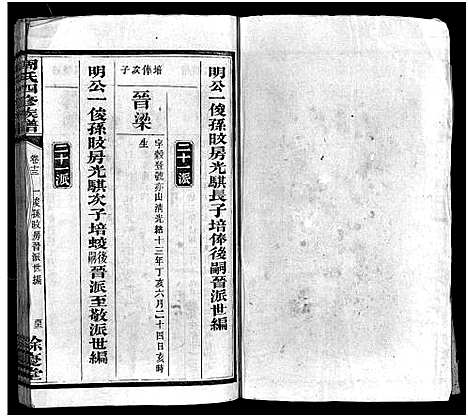 明公一俊孫旼房光騏長子培俸後嗣晉派世編
二十一派
培俸次子
晉梁
字穀登號亦山清光緒十三年丁亥六月二十四日亥時
生
明公一俊孫旼房光騏次子培蛟後嗣晉派至敬派世編
二十一派
周氏四修族譜
卷十三
一俊孫旼房晉派世編
餘慶堂